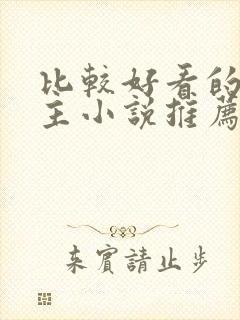 比較好看的
主小說推薦
来賓請止步